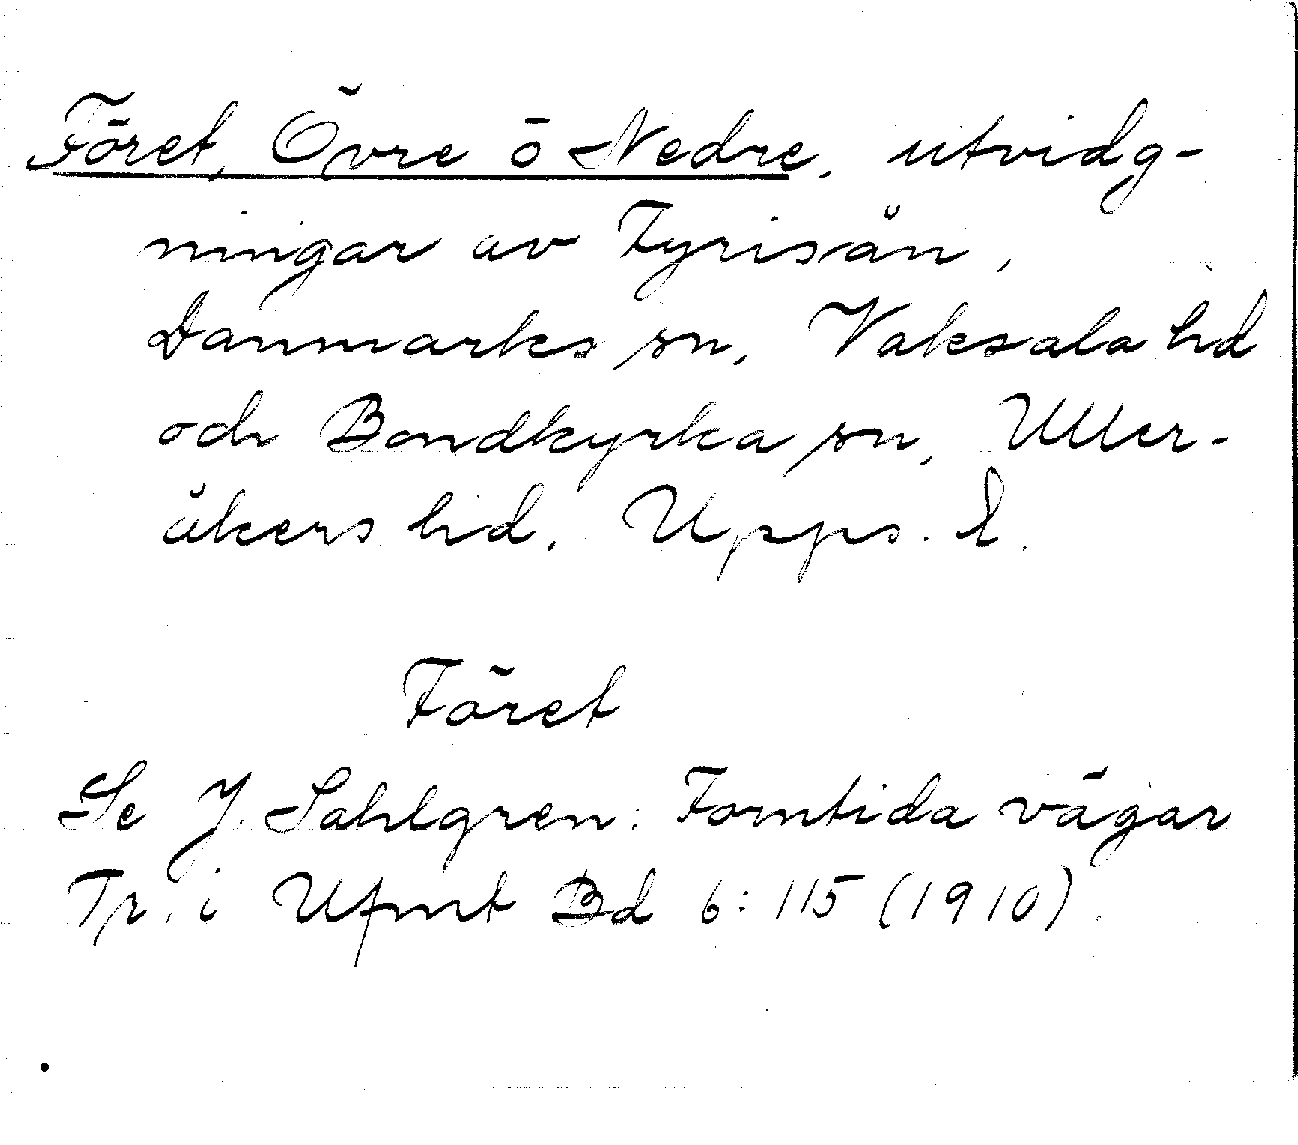 Föret, Övre o Nedre, utvidg-
ningar av Fyrisån,
Danmarks sn, Vaksala hd
och Bondkyrka sn, Uller-
åkers hd. Upps. l.
Föret
Se J. Sahlgren: Forntida vägar
Tr. i Ufmt Bd 6: 115 (1910).